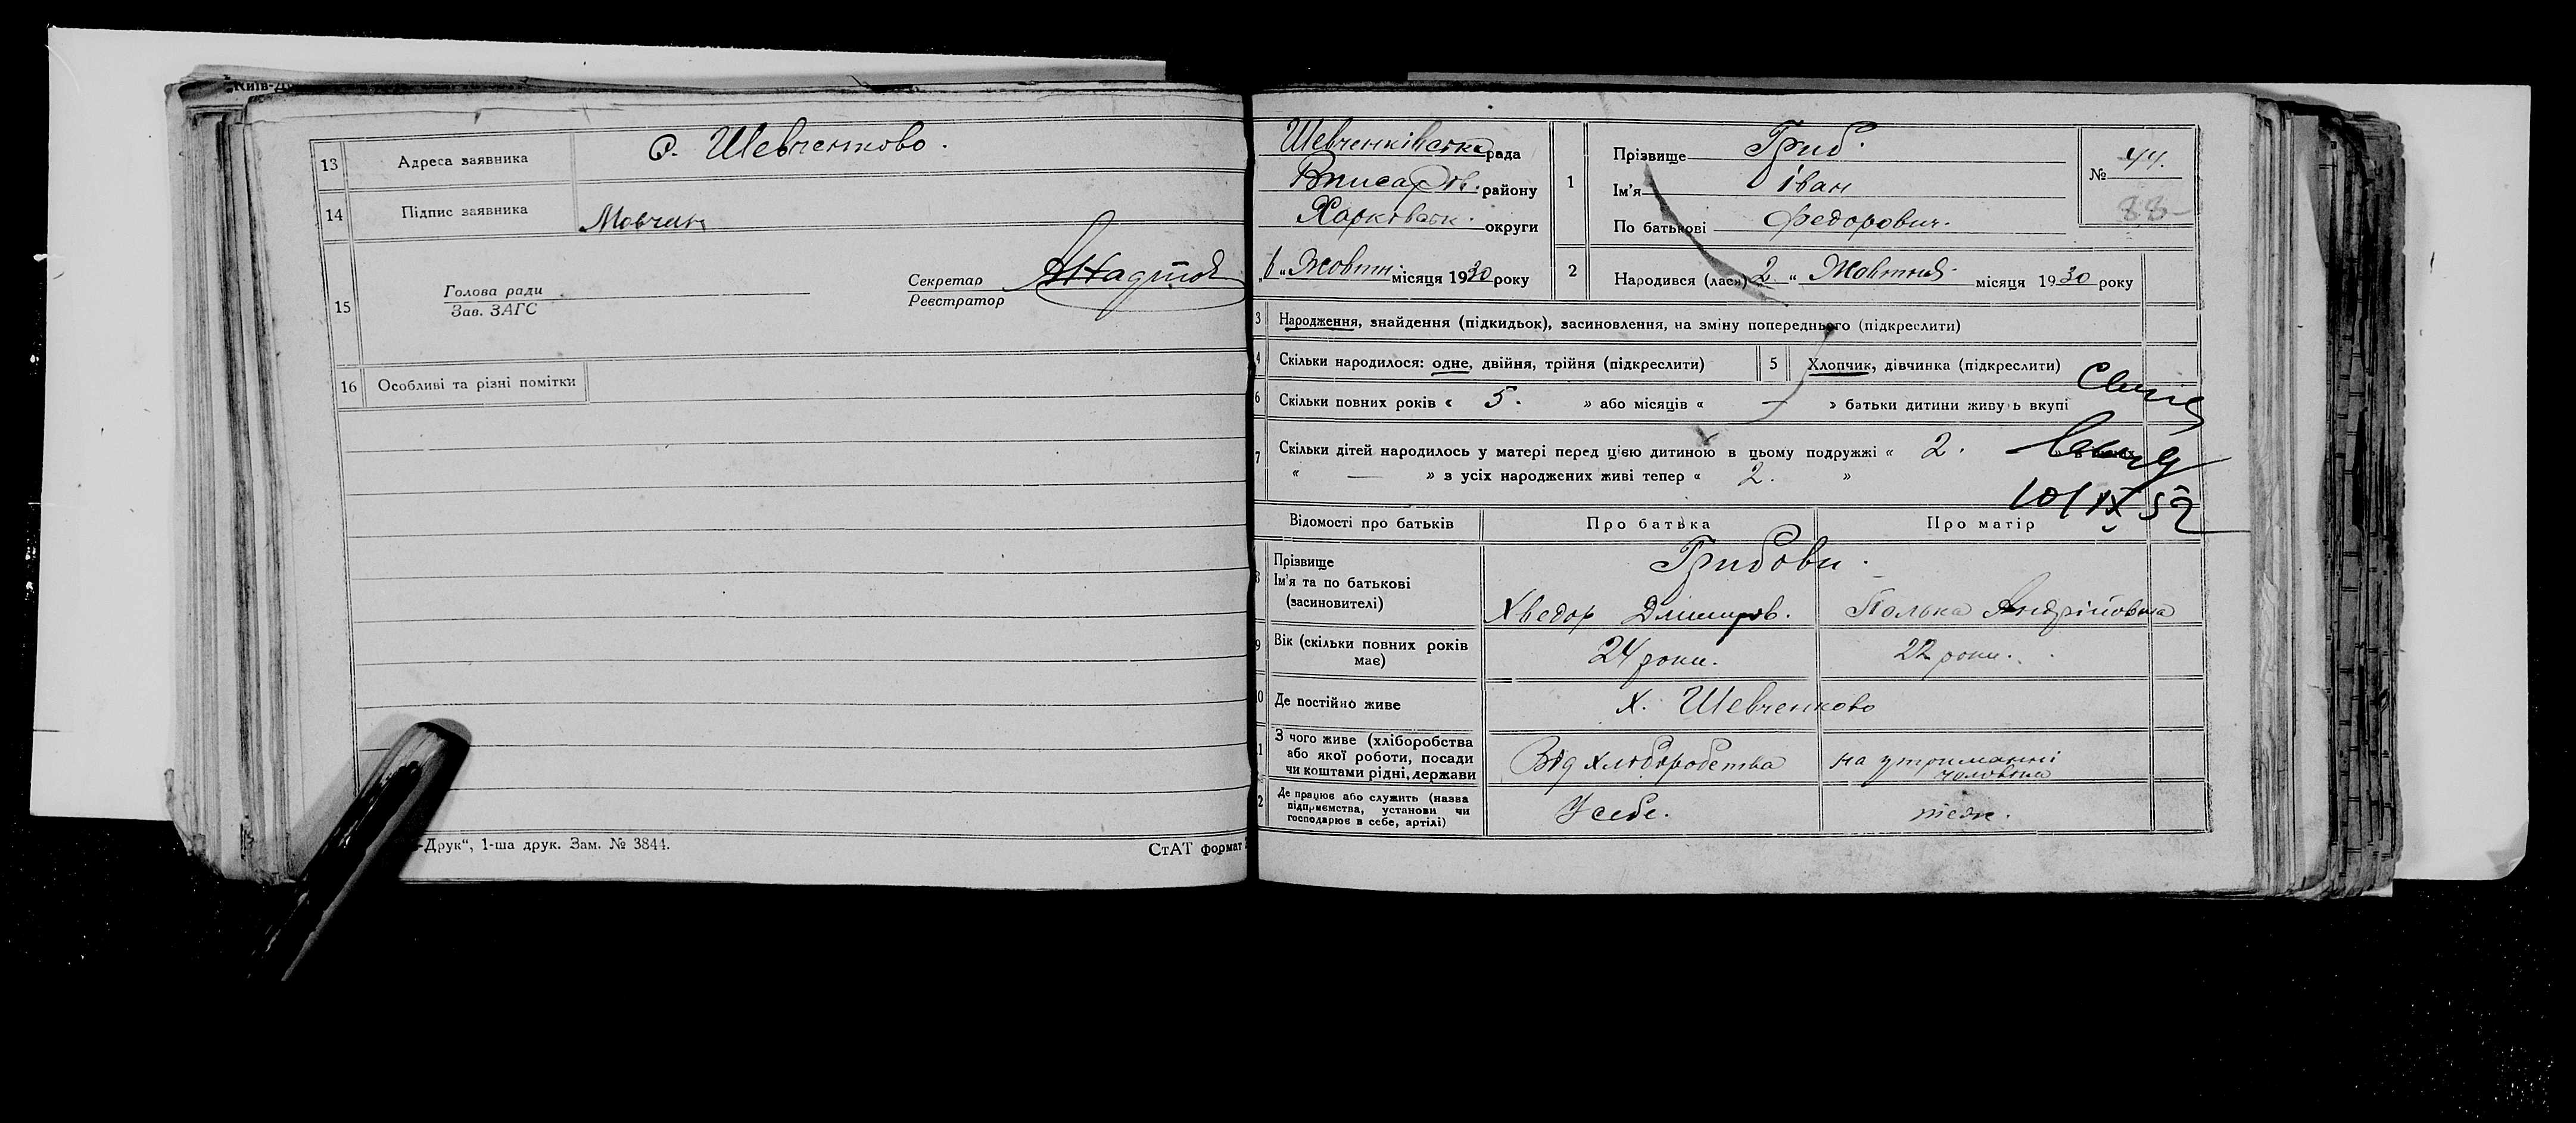 Київ-Д
13 Адреса заявника с. Шевченково.
14 Підпис заявника Мовчан
15 Голова ради
Зав. ЗАГС
Секретар
Реєстратор
16 Особливі та різні помітки
-Друк“, 1-ша друк. Зам. № 3844.
СтАТ формат
Шевченківська рада
району
Харківськ. округи
„6“ Жовтн. місяця 1930 року
1 Прізвище Гриб.
Ім'я Іван
По батькові Федорович.
№ 44.
88
2 Народився (лася) 2 “ Жовтня місяця 1930 року
3 Народження, знайдення (підкидьок), засиновлення, на зміну попереднього (підкреслити)
4 Скільки народилося: одне, двійня, трійня (підкреслити)
5 Хлопчик, дівчинка (підкреслити)
6 Скільки повних років « 5. » або місяців « — » батьки дитини живуть вкупі
7 Скільки дітей народилось у матері перед цією дитиною в цьому подружжі « 2.
« — » з усіх народжених живі тепер « 2. »
10/IX 52
Відомості про батьків Про батька Про матір
8 Прізвище
Ім'я та по батькові
(засиновителі)
Грибови.
Хведор Дмитров. Полька Андріївна
9 Вік (скільки повних років
має)
24 роки. 22 роки.
10 Де постійно живе х. Шевченково
11 З чого живе (хліборобства
або якої роботи, посади
чи коштами рідні, держави
Від хліборобства на утриманні
чоловіка
12 Де працює або служить (назва
підприємства, установи чи
господарює в себе, артілі)
У себе. теж.